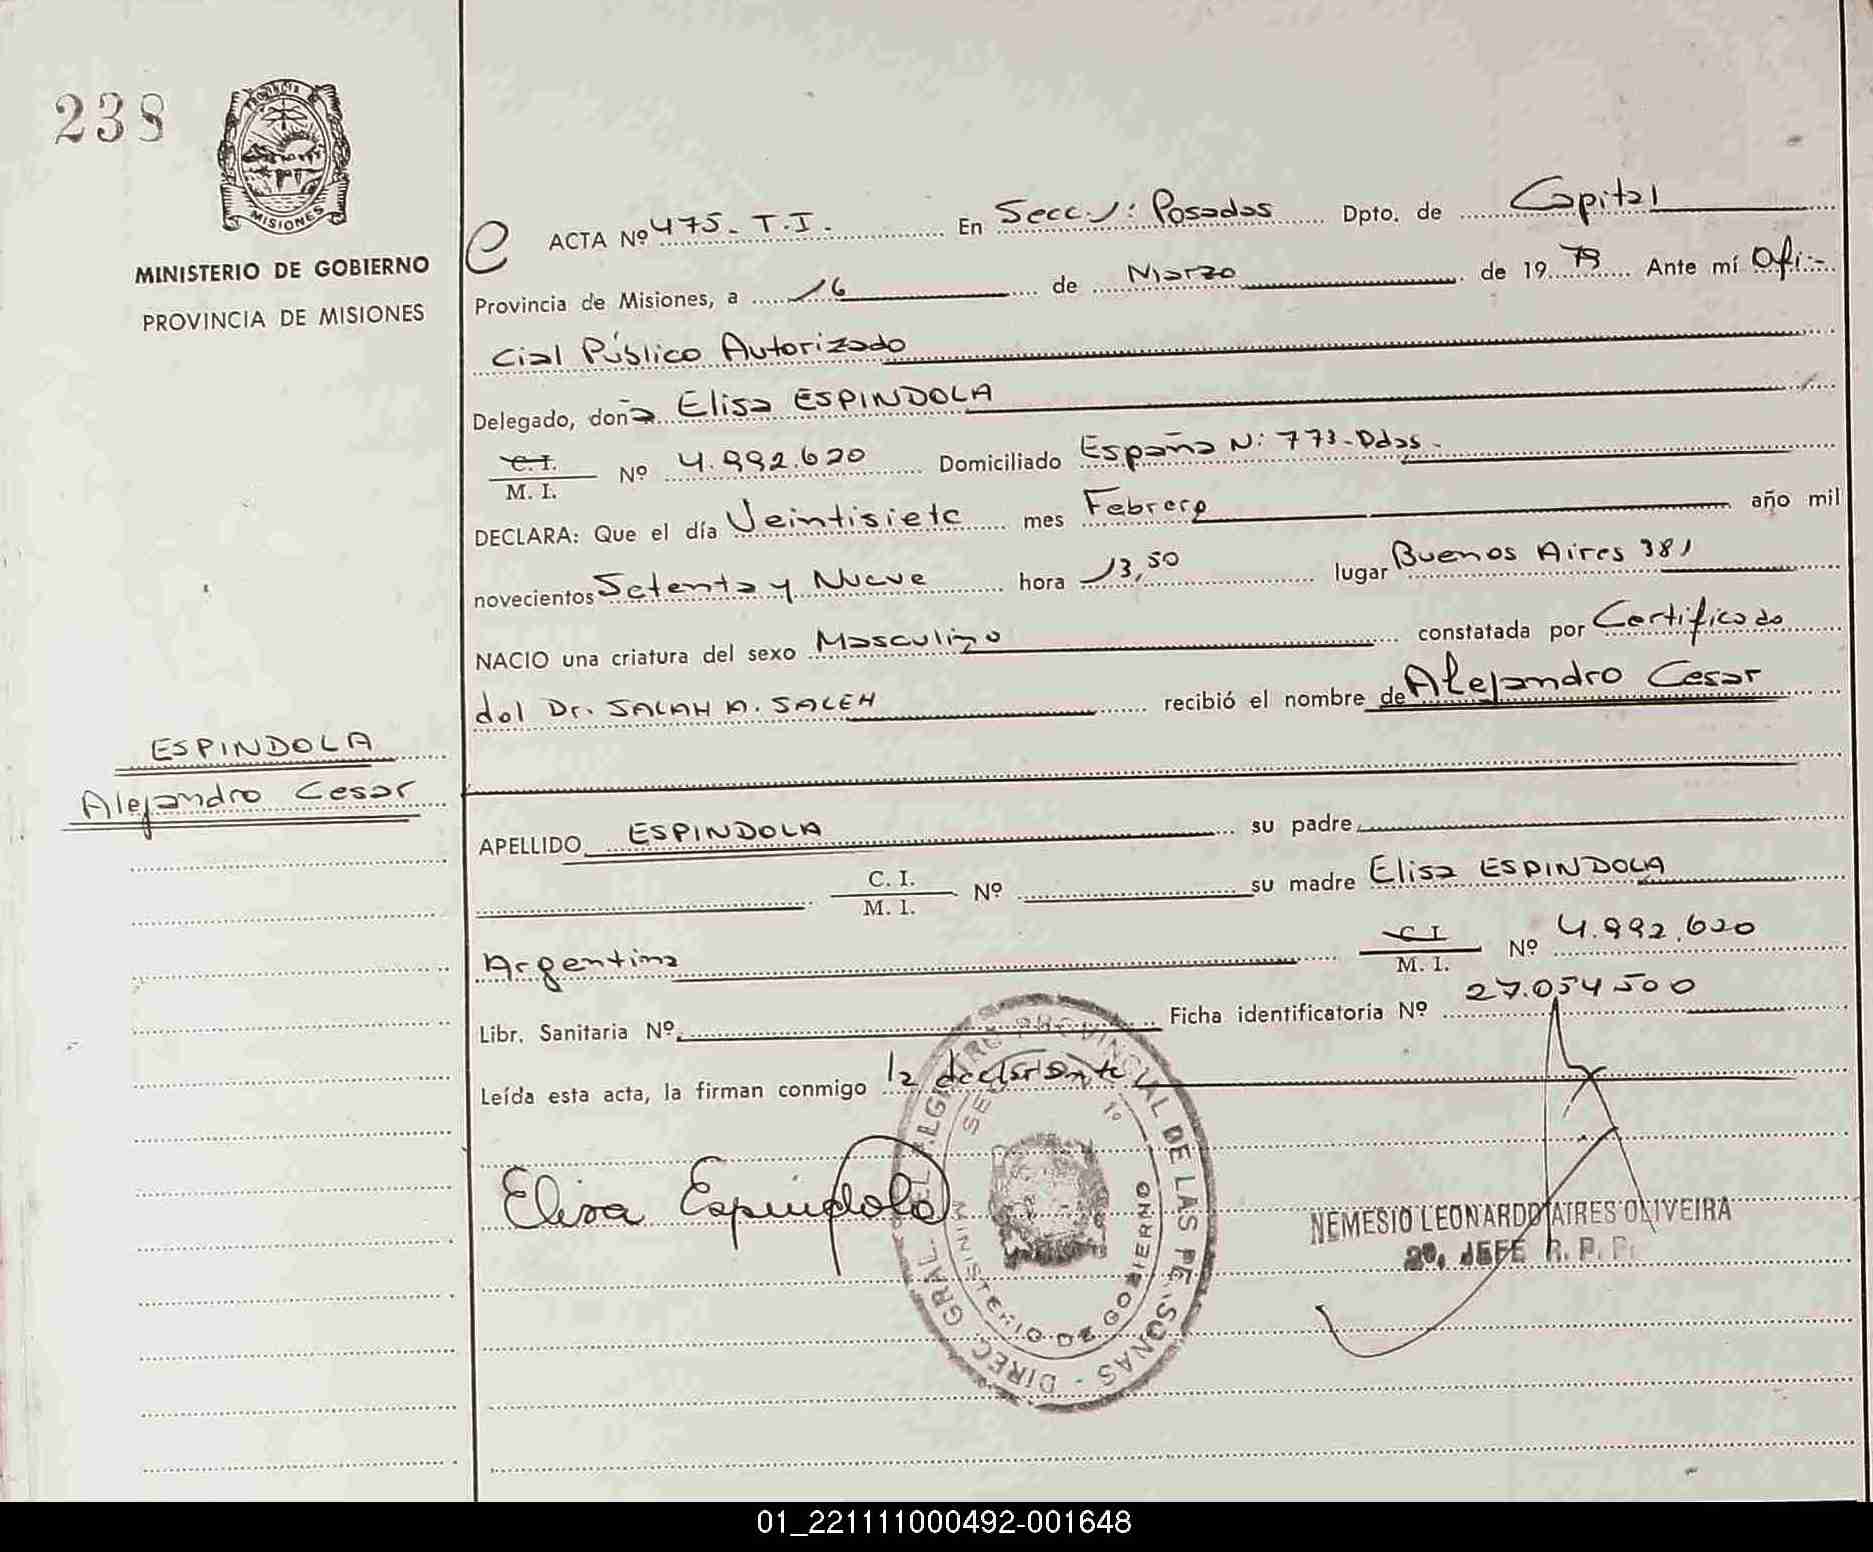 238
PROVINCIA
MISIONES
MINISTERIO DE GOBIERNO
PROVINCIA DE MISIONES
ACTA Nº 475-T.I. En Secc. 1: Posadas Dpto. de Capital
Provincia de Misiones, a 16 de Marzo de 1979 Ante mí Ofi-
cial Público Autorizado
Delegado, doña Elisa ESPINDOLA
C.I.
M. I. Nº 4.992.620 Domiciliado España N: 773-Pdas.
DECLARA: Que el día Veintisiete mes Febrero año mil
novecientos Setenta y Nueve hora 13,50 lugar Buenos Aires 381
NACIO una criatura del sexo Masculino constatada por Certificado
del Dr. SALAH A. SALEH recibió el nombre de Alejandro Cesar
ESPINDOLA
Alejandro Cesar
APELLIDO ESPINDOLA su padre
C. I.
M. I. Nº su madre Elisa ESPINDOLA
Argentina C I
M. I. Nº 4.992.620
Libr. Sanitaria Nº Ficha identificatoria Nº 27.054500
Leída esta acta, la firman conmigo la declarante
Elisa Espindola
DIREC. GRAL. PROVINCIAL DE LAS PERSONAS
MINISTERIO DE GOBIERNO
NEMESIO LEONARDO AIRES OLIVEIRA
2º. JEFE R. P. P.
01_221111000492-001648